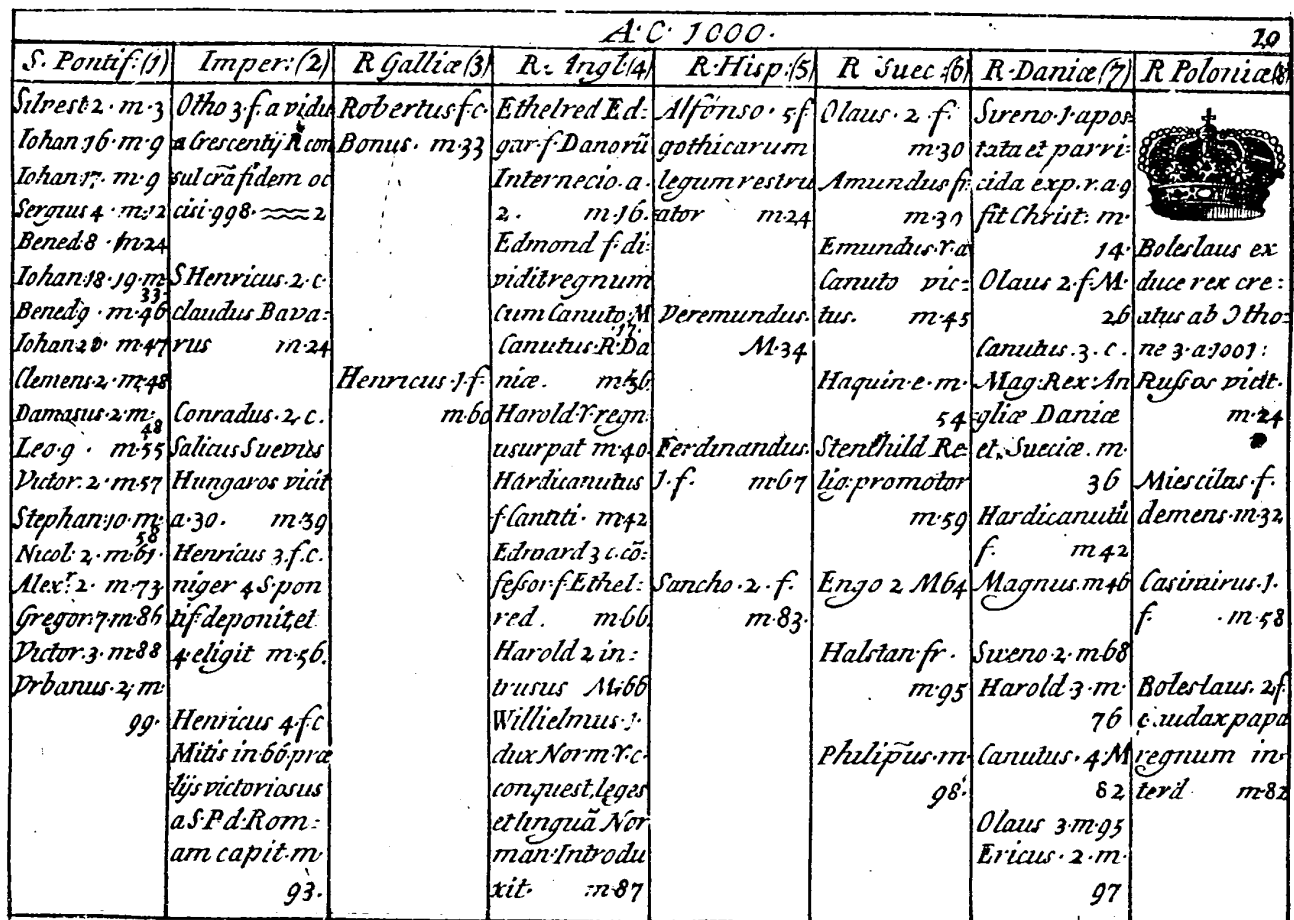 A·C· 1000·
20
S. Pontif:(1)
Silvest 2 · m·3
Iohan 16· m·9
Iohan 17· m·9
Sergius 4 · m·12
Bened·8 · m·24
Iohan·18·19·m·
33·
Bened9 · m·46
Iohan20· m·47
Clemens·2· m·48
Damasus·2·m·
48
Leo·9 · m·55
Victor·2·m·57
Stephan·10·m·
58
Nicol· 2· m·61·
Alexr· 2· m·73
Gregor·7·m·86
Victor·3·m·88
Vrbanus·2·m·
99·
Imper:(2)
Otho 3·f·a vidu
a Crescentij R con
sul crã fidem oc
cisi·998· 2
S Henricus·2·c·
claudus Bava:
rus m·24
Conradus·2·c.
Salicus Suevus
Hungaros vicit
a·30· m·39
Henricus 3·f.c.
niger 4 S·pon
tif deponit,et
4·eligit m·56.
Henricus 4·f.c
Mitis in 60·præ
lijs victoriosus
a S·P d·Rom:
am capit·m·
93·
R Galliæ(3)
Robertus f·c·
Bonus· m·33
Henricus·1·f·
m·60
R: Ingl(4)
Ethelred Ed:
gar·f·Danorũ
Internecio·a·
2· m·16·
Edmond f· di:
vidit regnum
cum Canuto·M
·17·
Canutus·R·Da
niæ. m·36
Harold·Y regn·
usurpat m·40·
Hardicanutus
f·Canuti· m·42
Edward 3 c·cõ:
fessor·f·Ethel:
red. m·66
Harold 2 in:
trusus M·66
Willielmus·1·
dux Norm·Y·c·
conquest,leges
et linguã Nor
man·Introdu
xit· m·87
R·Hisp·(5)
Alfonso· 5·f
gothicarum
legum restru
ator m·24
Veremundus·
M·34
Ferdinandus·
1·f· m·67
Sancho·2·f.
m·83·
R Suec·(6)
Olaus· 2· f·
m·30
Amundus fr·
m·30
Emundus·Y·a
Canuto vic:
tus. m·45
Haquin·e·m·
54
Stenkhild Re
lig:promotor
m·59
Engo 2 M64
Halstan·fr·
m·95
Philipus·m·
98·
R·Daniæ(7)
Sueno·1·apos
tata et parri:
cida exp·r·a·9
fit Christ: m·
14·
Olaus 2·f·M·
26
Canutus·3·c·
Mag:Rex:An
gliæ Daniæ
et Sueciæ· m·
36
Hardicanutũ
f· m 42
Magnus·m46
Sweno·2·m·68
Harold·3·m·
76
Canutus·4·M
82
Olaus 3·m·95
Ericus·2·m·
97
R Poloniæ(8)
Boleslaus ex
duce rex cre:
atus ab Otho:
ne 3·a·1001:
Russos vicit·
m·24
Miescilas·f.
demens·m·32
Casimirus·1·
f· ·m·58
Boleslaus·2·f
c·audax papa
regnum in·
terd m·82